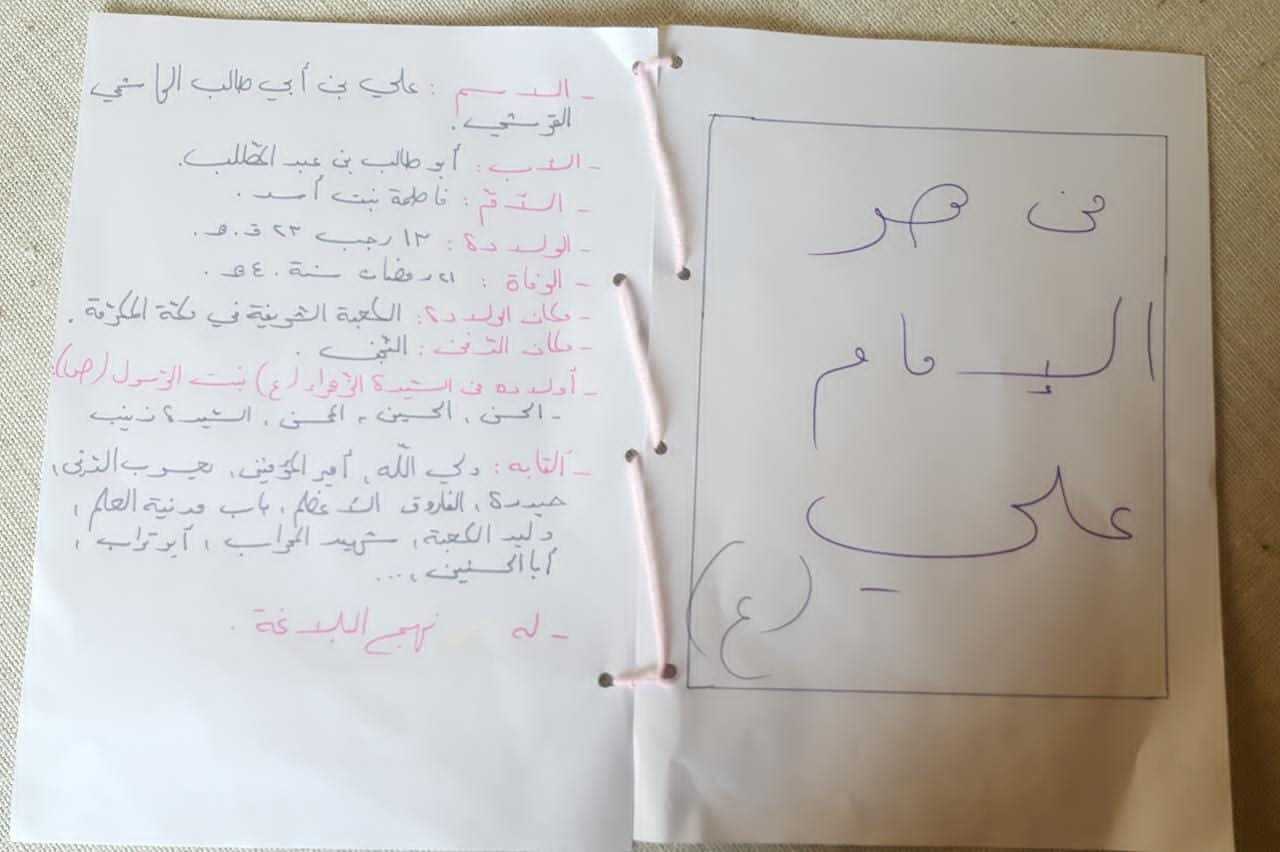 من هو
الإمام
علي
(ع)
- الاسم : علي بن أبي طالب الهاشمي
القرشي .
- الأب : أبو طالب بن عبد المطلب.
- الأمّ : فاطمة بنت أسد .
- الولادة : ١٣ رجب ٢٣ ق.ه .
- الوفاة : ٢١ رمضان سنة ٤٠ ه .
- مكان الولادة : الكعبة الشريفة في مكّة المكرّمة .
- مكان الدّفن : النّجف .
- أولاده من السّيدة الزّهراء (ع) بنت الرّسول (ص):
- الحسن ، الحسين ، المحسن ، السّيدة زينب
- ألقابه : ولي اللّه ، أمير المؤمنين ، يعسوب الدّين ،
حيدرة ، الفاروق الأعظم ، باب مدينة العلم ،
وليد الكعبة ، شهيد المحراب ، أبو تراب ،
أبا الحسنين ، ...
- له نهج البلاغة .